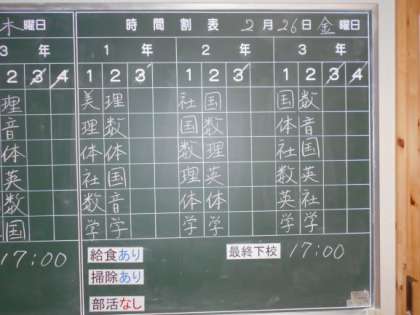 木曜日 時間割表 2月26日 金曜日
3年 1年 2年 3年
2 3 4 1 2 3 1 2 3 1 2 3 4
理 美理 社国 国数
音 理数 国数 体音
体 体体 数理 社国
英 社国 理英 数英
数 数音 体体 英社
国 学学 学学 学学
17:00 給食あり 最終下校 17:00
掃除あり
部活なし